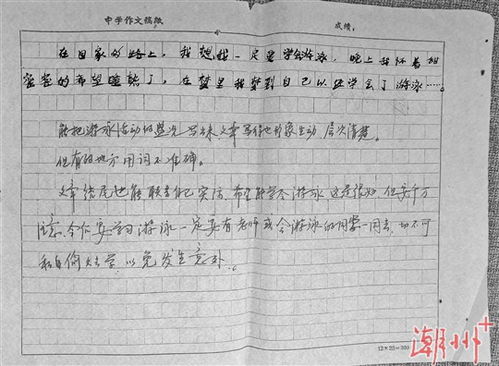 中学作文稿纸 成绩:
在回家的路上,我想我一定要学会游泳,晚上我怀着甜
蜜蜜的希望睡熟了,在梦里我梦到自己以经学会了游泳……
能把游泳活动的盛况写出来,文章写得也形象生动,层次清楚。
但有的地方用词不准确。
文章结尾也能联系自己实际,希望能学会游泳这是很好,但要千万
注意,今后要学习游泳一定要有老师或会游泳的同学一同去,切不可
私自偷去学,以免发生意外。
12×25=300
潮州+